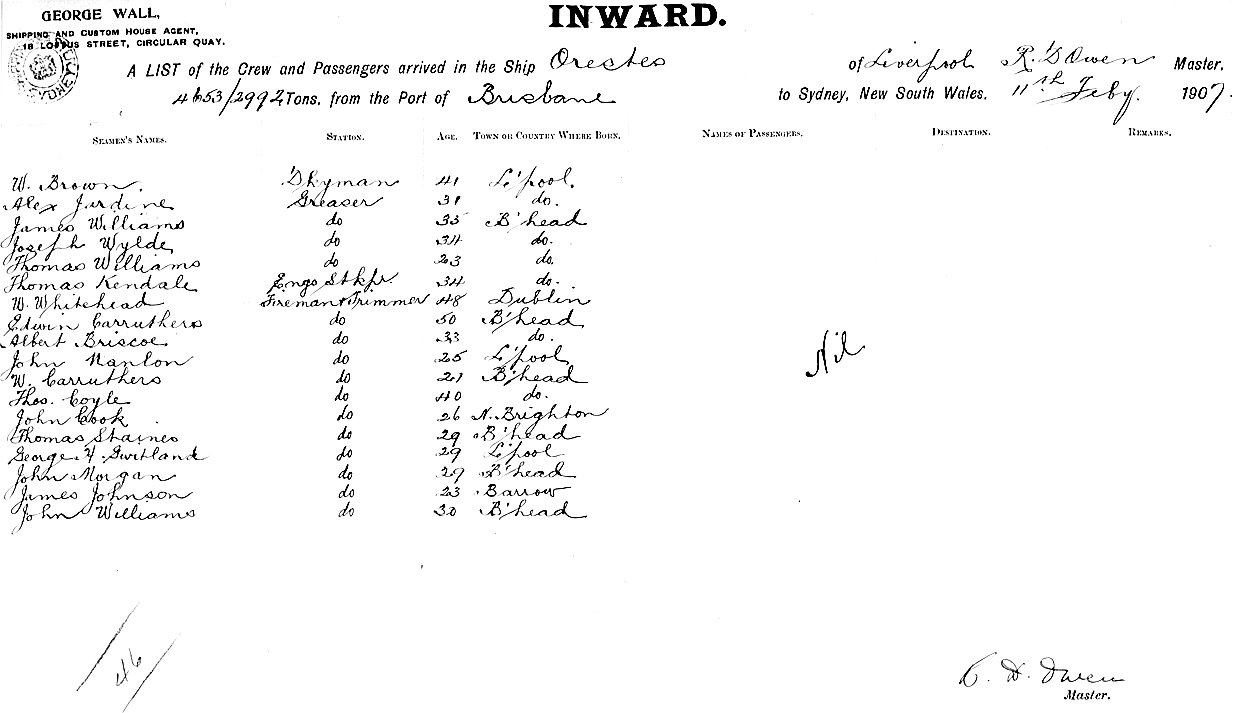 GEORGE WALL,
SHIPPING AND CUSTOM HOUSE AGENT,
18 LOFTUS STREET, CIRCULAR QUAY.
INWARD.
A LIST of the Crew and Passengers arrived in the Ship Orestes of Liverpool R. D Owen Master,
4653/2992 Tons, from the Port of Brisbane to Sydney, New South Wales, 11th Feby. 1907.
SEAMEN'S NAMES. STATION. AGE. TOWN OR COUNTRY WHERE BORN. NAMES OF PASSENGERS. DESTINATION. REMARKS.
W. Brown. Dkyman 41 L'pool.
Alex Jardine Greaser 31 do.
James Williams do 35 B'head
Joseph Wylde do 34 do.
Thomas Williams do 23 do.
Thomas Kendale Engs Stkpr. 34 do.
W. Whitehead Fireman & Trimmer 48 Dublin
Edwin Carruthers do 50 B'head
Albert Briscoe do 33 do.
John Hanlon do 25 L'pool
W. Carruthers do 21 B'head
Thos. Coyle do 40 do.
John Cook do 26 N. Brighton
Thomas Staines do 29 B'head
George do 29 L'pool
John Morgan do 29 B'head
James Johnson do 23 Barrow
John Williams do 30 B'head
Nil
46
D. Owen
Master.